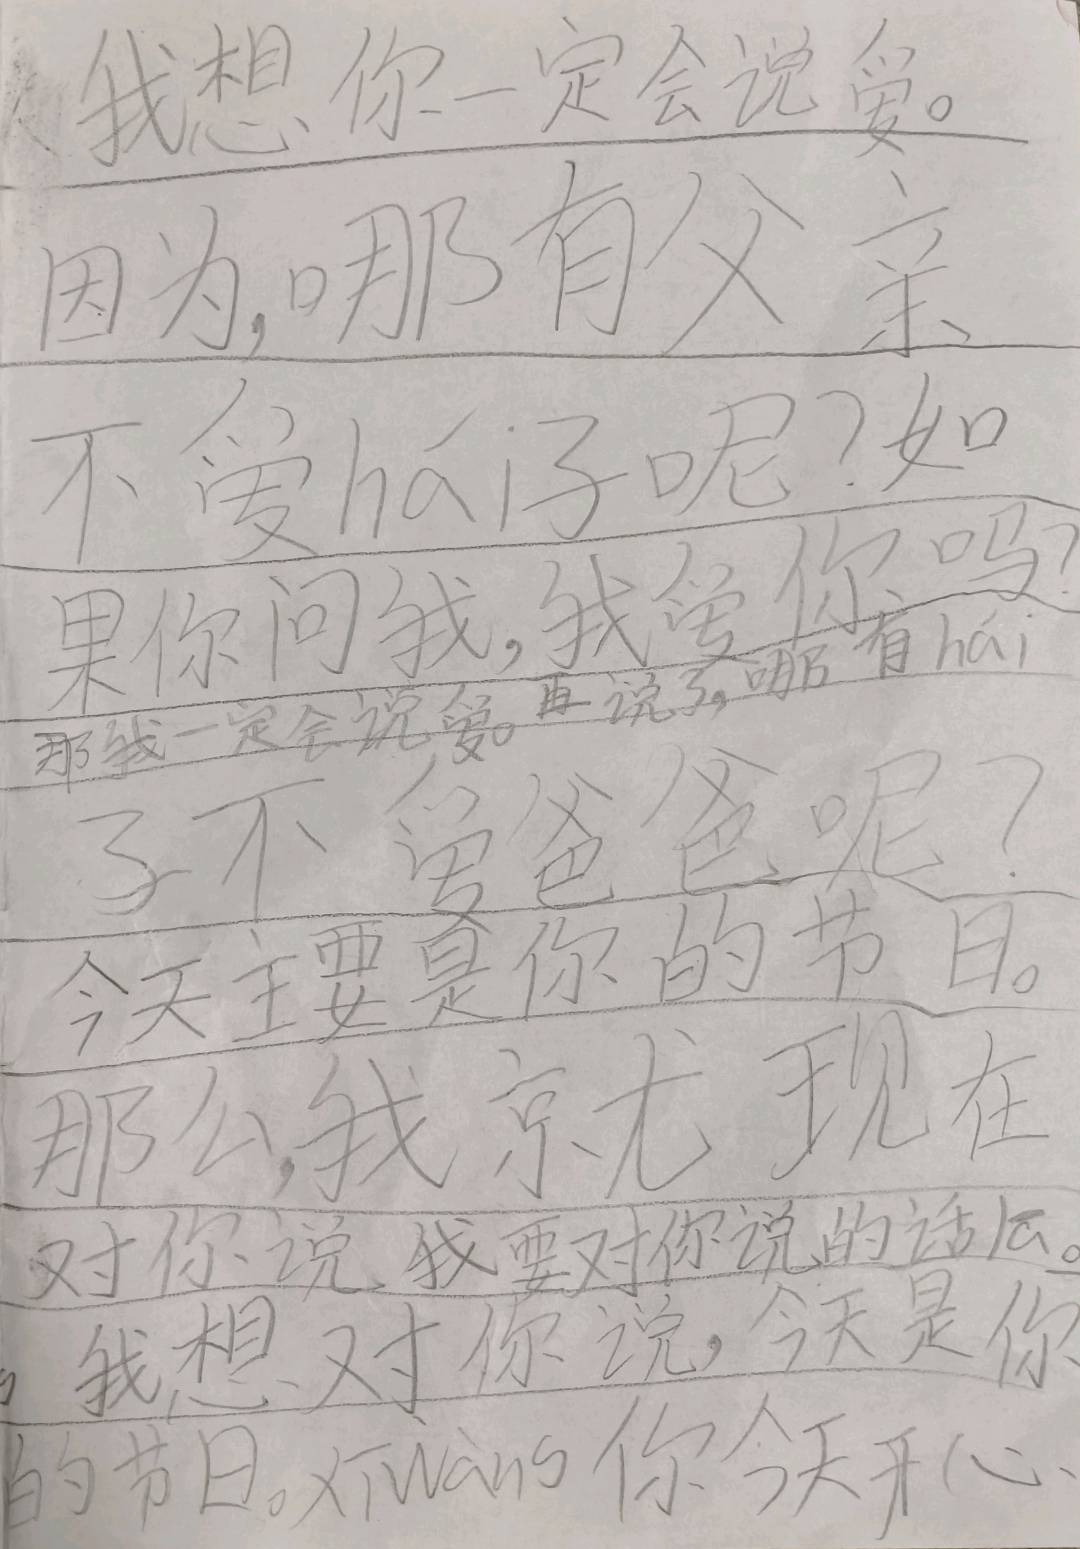 我想你一定会说爱。
因为,哪有父亲
不爱hái子呢?如
果你问我,我爱你吗?
那我一定会说爱。再说了,哪有hái
子不爱爸爸呢?
今天主要是你的节日。
那么,我就现在
对你说我要对你说的话la。
我想对你说,今天是你
的节日。xīwàng你今天开心